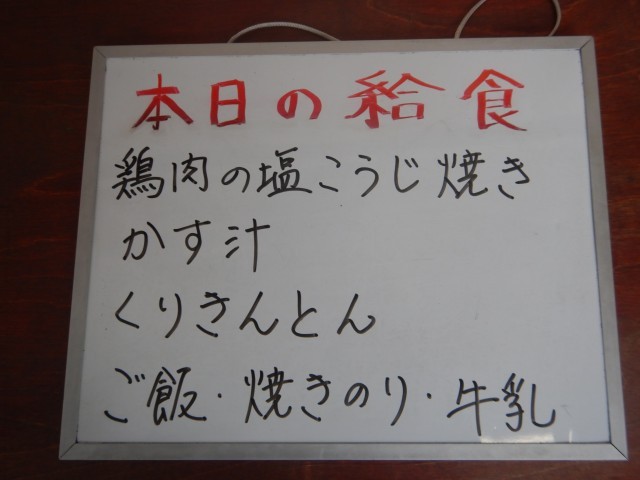 本日の給食
鶏肉の塩こうじ焼き
かす汁
くりきんとん
ご飯・焼きのり・牛乳